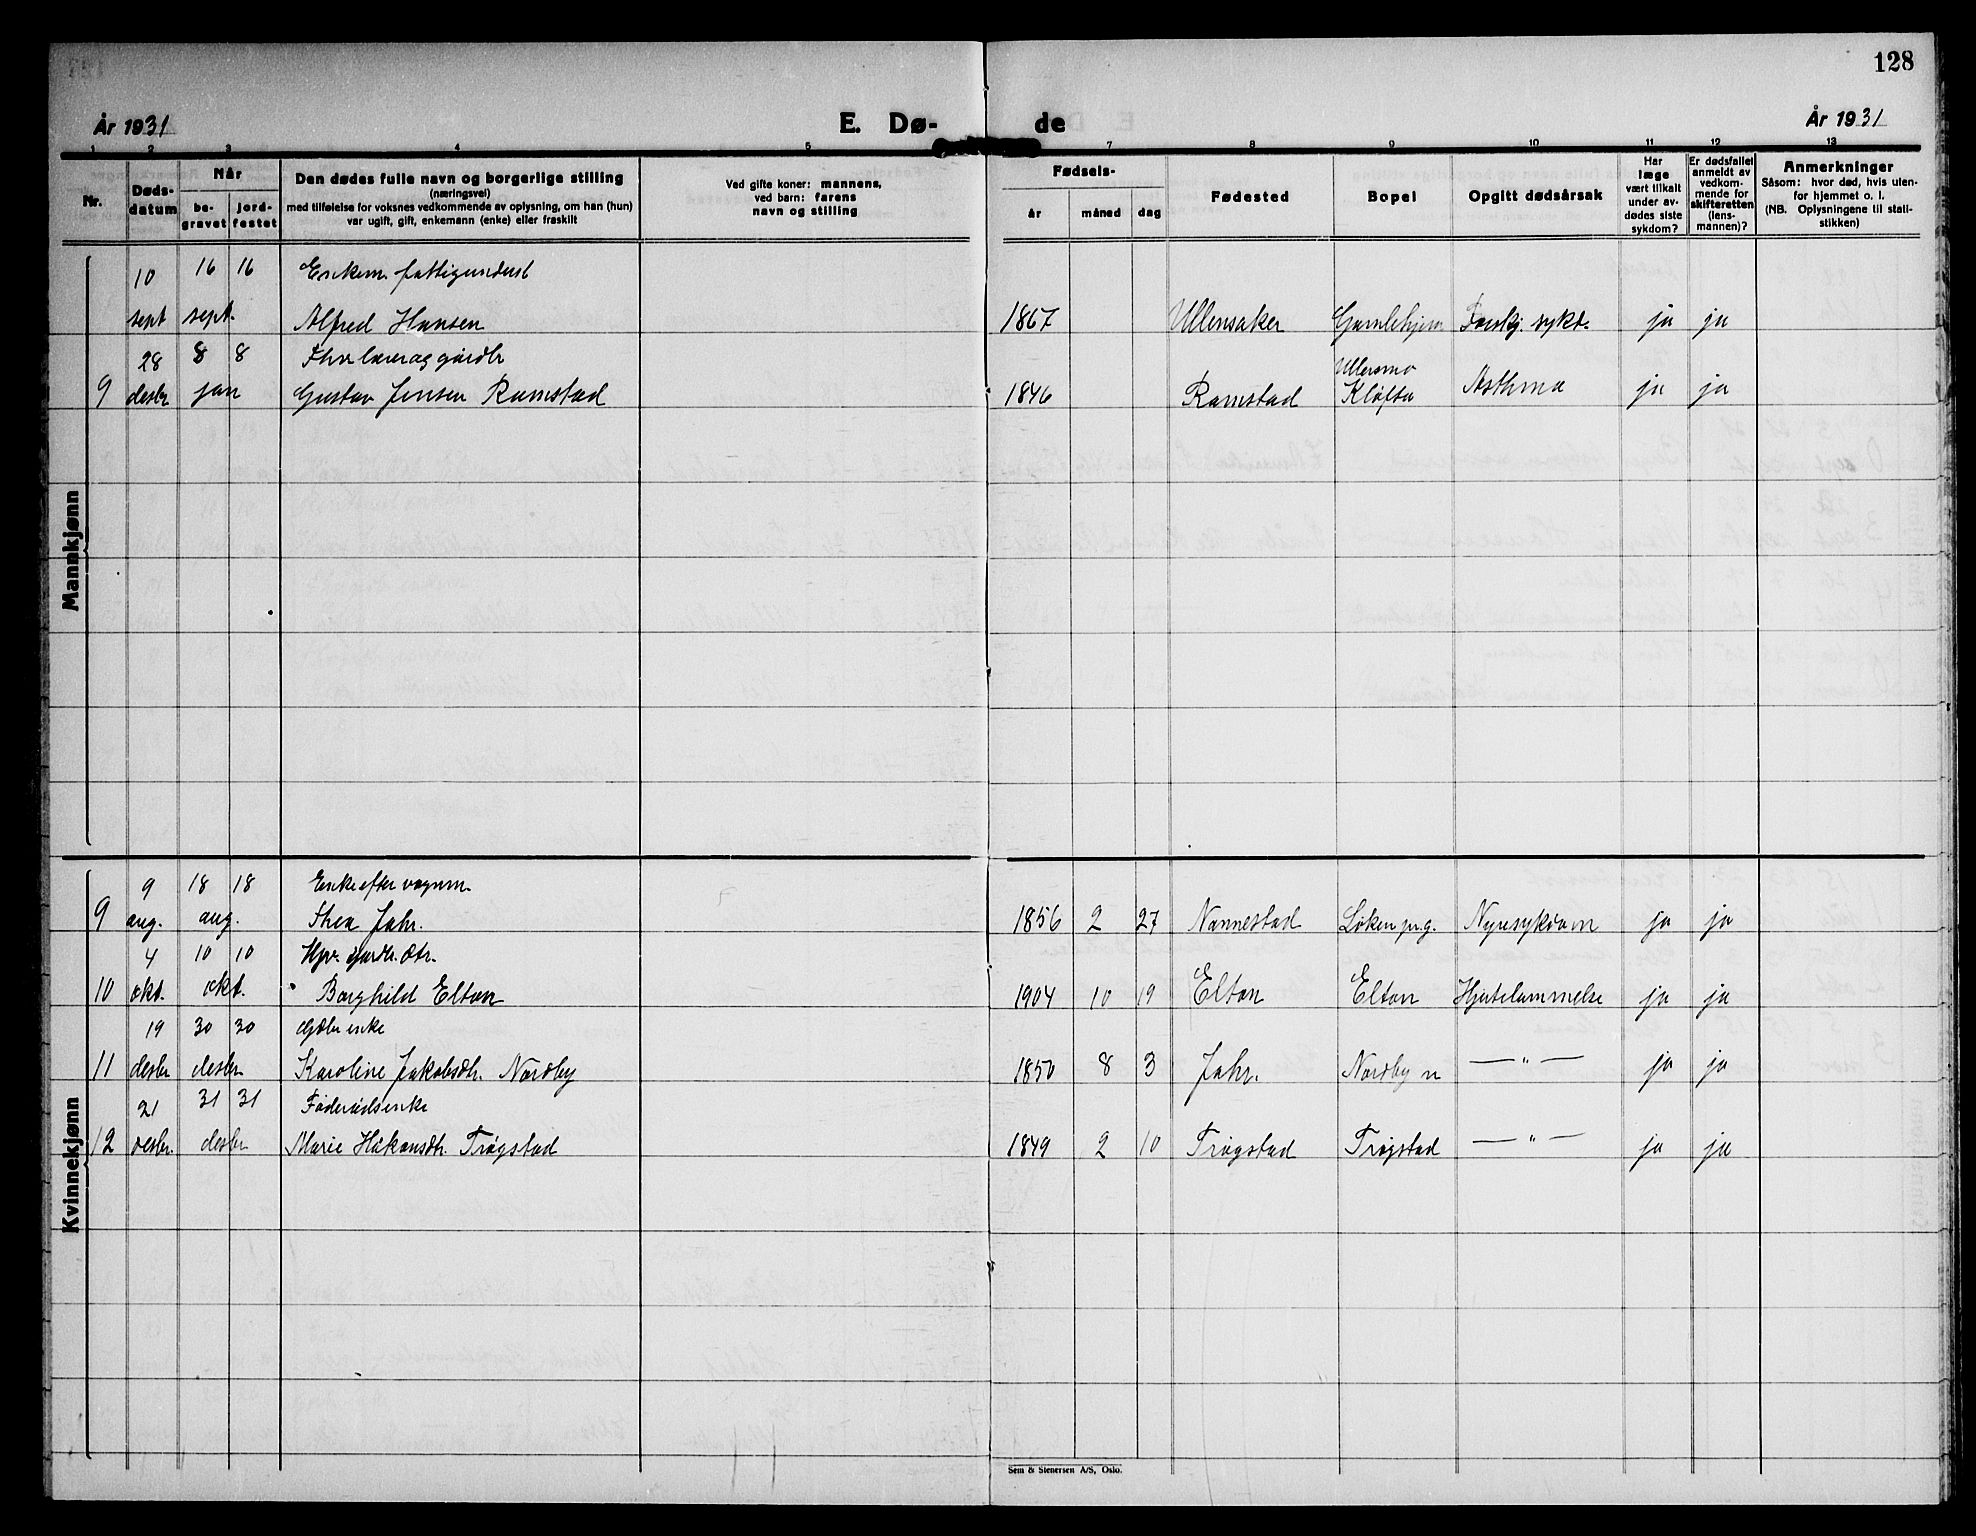 128
År 1931 E. Dø- de År 1931
1 2 3 4 5 7 8 9 10 11 12 13
Nr.
Døds-
datum
Når
be-
gravet
jord-
festet
Den dødes fulle navn og borgerlige stilling
(næringsvei)
med tilføielse for voksnes vedkommende av oplysning, om han (hun)
var ugift, gift, enkemann (enke) eller fraskilt
Ved gifte koner: mannens,
ved barn: farens
navn og stilling
Fødsels-
år måned dag
Fødested
Bopel
Opgitt dødsårsak
Har
læge
vært tilkalt
under av-
dødes siste
sykdom?
Er dødsfallet
anmeldt av
vedkom-
mende for
skifteretten
(lens-
mannen)?
Anmerkninger
Såsom: hvor død, hvis uten-
for hjemmet o. l.
(NB. Oplysningene til stati-
stikken)
Mannkjønn
10 16 16 Enkem. fattigunderst
sept sept. Alfred Hansen 1867 Ullensaker Gamlehjem Forskj. sykd. ja ja
28 8 8 Fhv. lærer og gårdbr Ullersmo
9 desbr jan Gustav Jensen Ramstad 1846 Ramstad Kløfta Asthma ja ja
Kvinnekjønn
9 18 18 Enke efter vognm.
9 aug. aug. Thea Jahr. 1856 2 27 Nannestad Løken pr.g. Nyresykdom ja ja
4 10 10 Hjv. gardbr. dtr.
10 okt. okt. Borghild Elton 1904 10 19 Elton Elton Hjertelammelse ja ja
19 30 30 Gdbr enke
11 desbr desbr Karoline Jakobsdtr. Nordby 1850 8 3 Jahr. Nordby n — " — ja ja
21 31 31 Føderådsenke
12 desbr. desbr Marie Håkonsdtr. Trøgstad 1849 2 10 Trøgstad Trøgstad — " — ja ja
Sem & Stenersen A/S, Oslo.